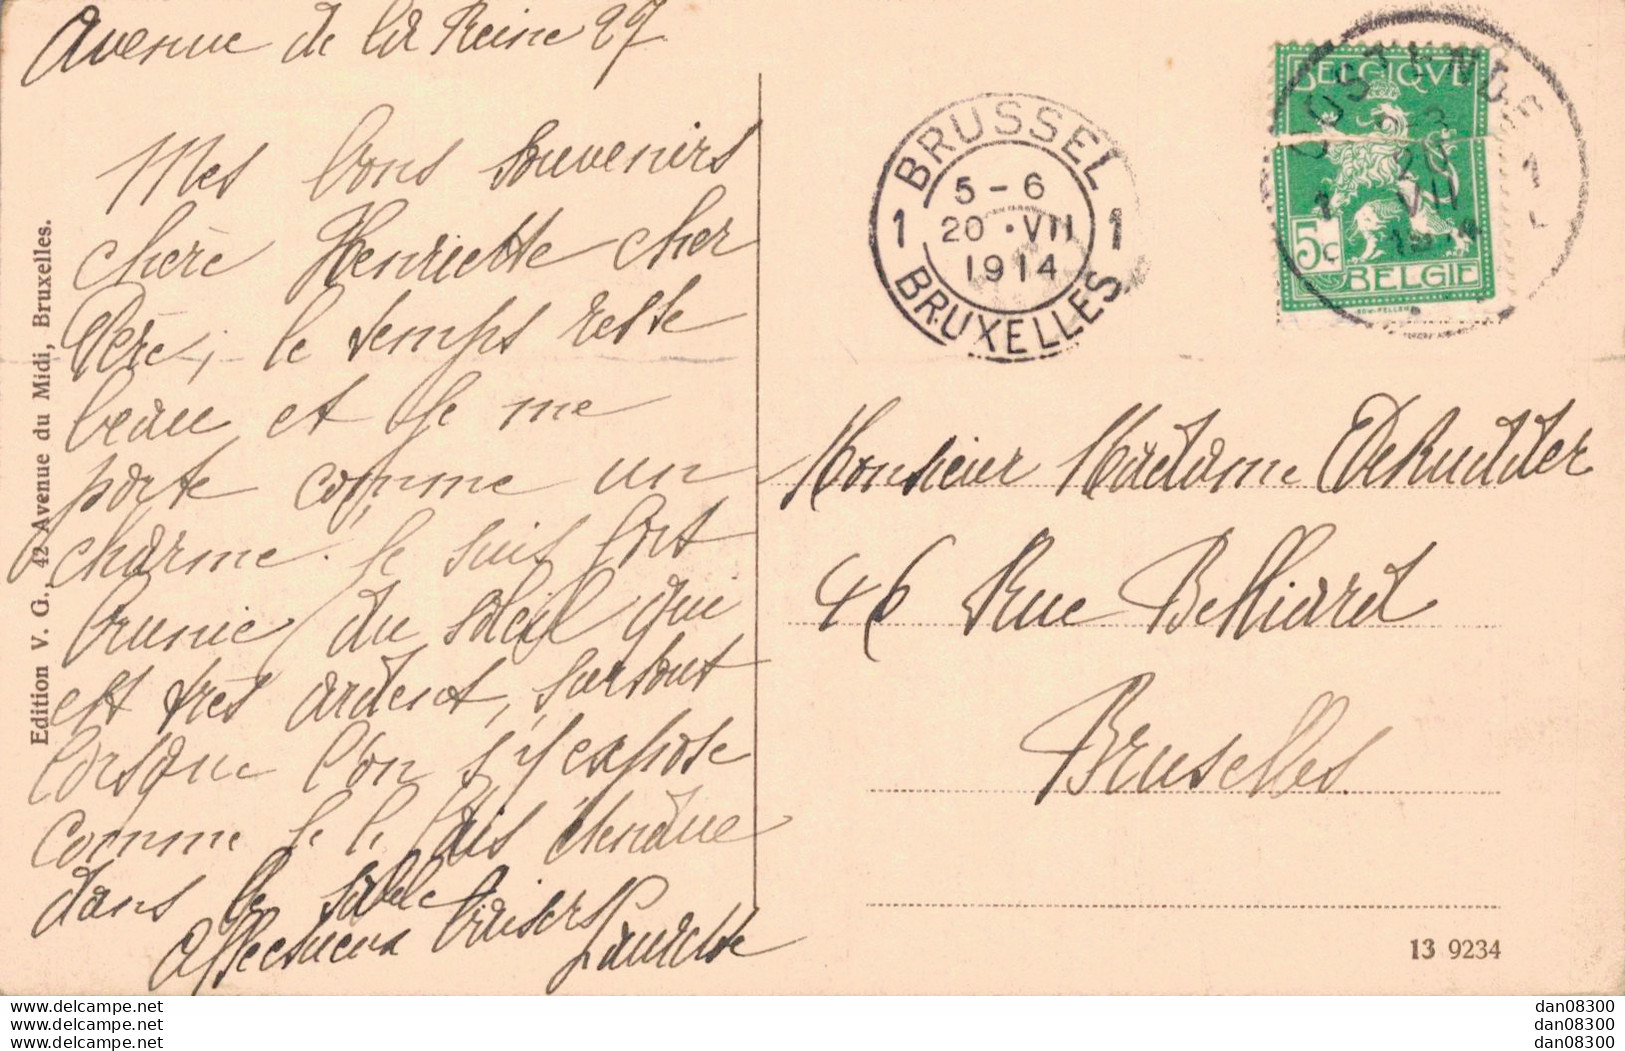 Avenue de la Reine 27
Mes bons souvenirs
chère Henriette cher
Père, le temps reste
beau et je me
porte comme un
charme. Je suis fort
brunie du soleil qui
est très ardent, surtout
lorsque l'on s'y expose
comme je le fais étendue
dans le sable
Affectueux baisers
Laurette
Edition V. G., 42 Avenue du Midi, Bruxelles.
BRUSSEL
5-6
1 20 · VII 1
1914
BRUXELLES
BELGIQVE
5c
BELGIE
1 20 1
VII
1914
Monsieur Madame DeRudder
46 Rue Belliard
Bruxelles.
13 9234
dan08300
dan08300
dan08300
dan08300
dan08300
dan08300